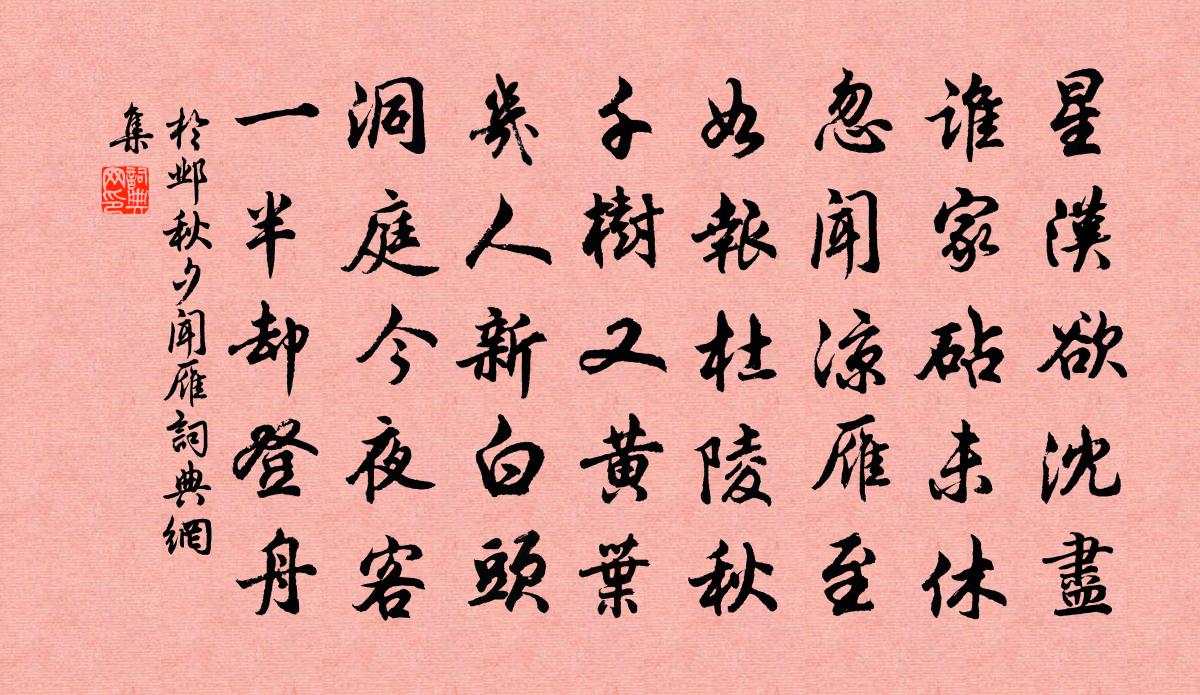 星漢欲沈盡
誰家砧未休
忽聞涼雁至
如報杜陵秋
千樹又黃葉
幾人新白頭
洞庭今夜客
一半却登舟
於鄴秋夕聞雁詞典網
集
詞典网印